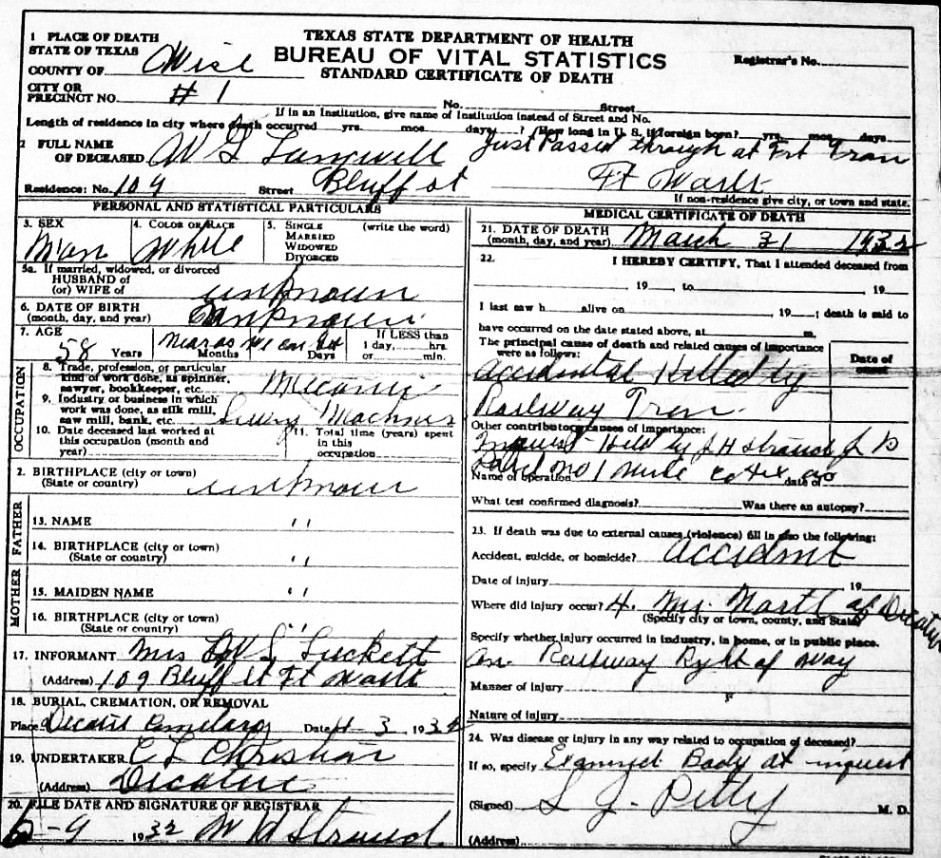 TEXAS STATE DEPARTMENT OF HEALTH
BUREAU OF VITAL STATISTICS
STANDARD CERTIFICATE OF DEATH
Registrar's No.
1 PLACE OF DEATH
STATE OF TEXAS
COUNTY OF Wise
CITY OR
PRECINCT NO. #1 No. Street
If in an Institution, give name of Institution instead of Street and No.
Length of residence in city where death occurred yrs. mos. days ? (How long in U. S. if foreign born? yrs. mos. days
2 FULL NAME
OF DECEASED W G Just Passed through at Frt Tran
Residence: No. 109 Street Bluff st Ft
If non-residence give city, or town and state.
PERSONAL AND STATISTICAL PARTICULARS
3. SEX Man
4. COLOR OR RACE White
5. SINGLE (write the word)
MARRIED
WIDOWED
DIVORCED
5a. If married, widowed, or divorced
HUSBAND of
(or) WIFE of unknown
6. DATE OF BIRTH
(month, day, and year) unknown
7. AGE 58 Years Near as we Can Months Days If LESS than
1 day, hrs.
or min.
OCCUPATION
8. Trade, profession, or particular
kind of work done, as spinner,
sawyer, bookkeeper, etc.
9. Industry or business in which
work was done, as silk mill,
saw mill, bank, etc.
10. Date deceased last worked at
this occupation (month and
year)
11. Total time (years) spent
in this
occupation
2. BIRTHPLACE (city or town)
(State or country) unknown
FATHER
13. NAME "
14. BIRTHPLACE (city or town)
(State or country) "
MOTHER
15. MAIDEN NAME "
16. BIRTHPLACE (city or town)
(State or country) "
17. INFORMANT Mrs
(Address) 109 Bluff st Ft
18. BURIAL, CREMATION, OR REMOVAL
Place Date 4-3 1932
19. UNDERTAKER C L Christian
(Address) Decatur
20. FILE DATE AND SIGNATURE OF REGISTRAR
-9 1932 Strand
MEDICAL CERTIFICATE OF DEATH
21. DATE OF DEATH
(month, day, and year) March 31 1932
22. I HEREBY CERTIFY, That I attended deceased from
19 to 19
I last saw h alive on 19 ; death is said to
have occurred on the date stated above, at m.
The principal cause of death and related causes of importance
were as follows:
Date of
onset
Accidental Killed by
Railway Tren
Other contributory causes of importance:
Inquest Held by J H Strand J P
Name of operation date of
What test confirmed diagnosis? Was there an autopsy?
23. If death was due to external causes (violence) fill in also the following:
Accident, suicide, or homicide? Accident
Date of injury 19
Where did injury occur? 4 of Decatur
(Specify city or town, county, and State)
Specify whether injury occurred in industry, in home, or in public place.
on Railway Right of way
Manner of injury
Nature of injury
24. Was disease or injury in any way related to occupation of deceased?
If so, specify Body at inquest
(Signed) L J Petty M. D.
(Address)